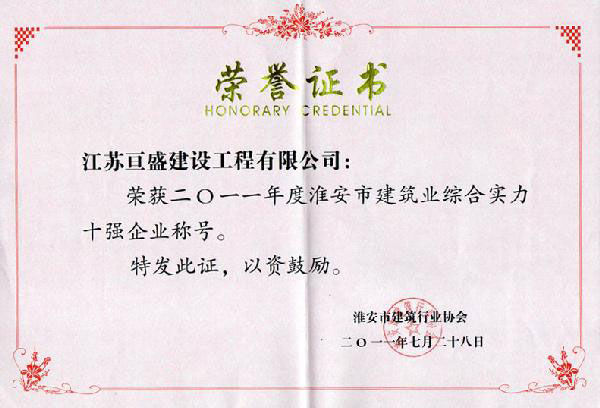 荣誉证书
HONORARY CREDENTIAL
江苏亘盛建设工程有限公司：
荣获二〇一一年度淮安市建筑业综合实力
十强企业称号。
特发此证，以资鼓励。
淮安市建筑行业协会
二〇一一年七月二十八日